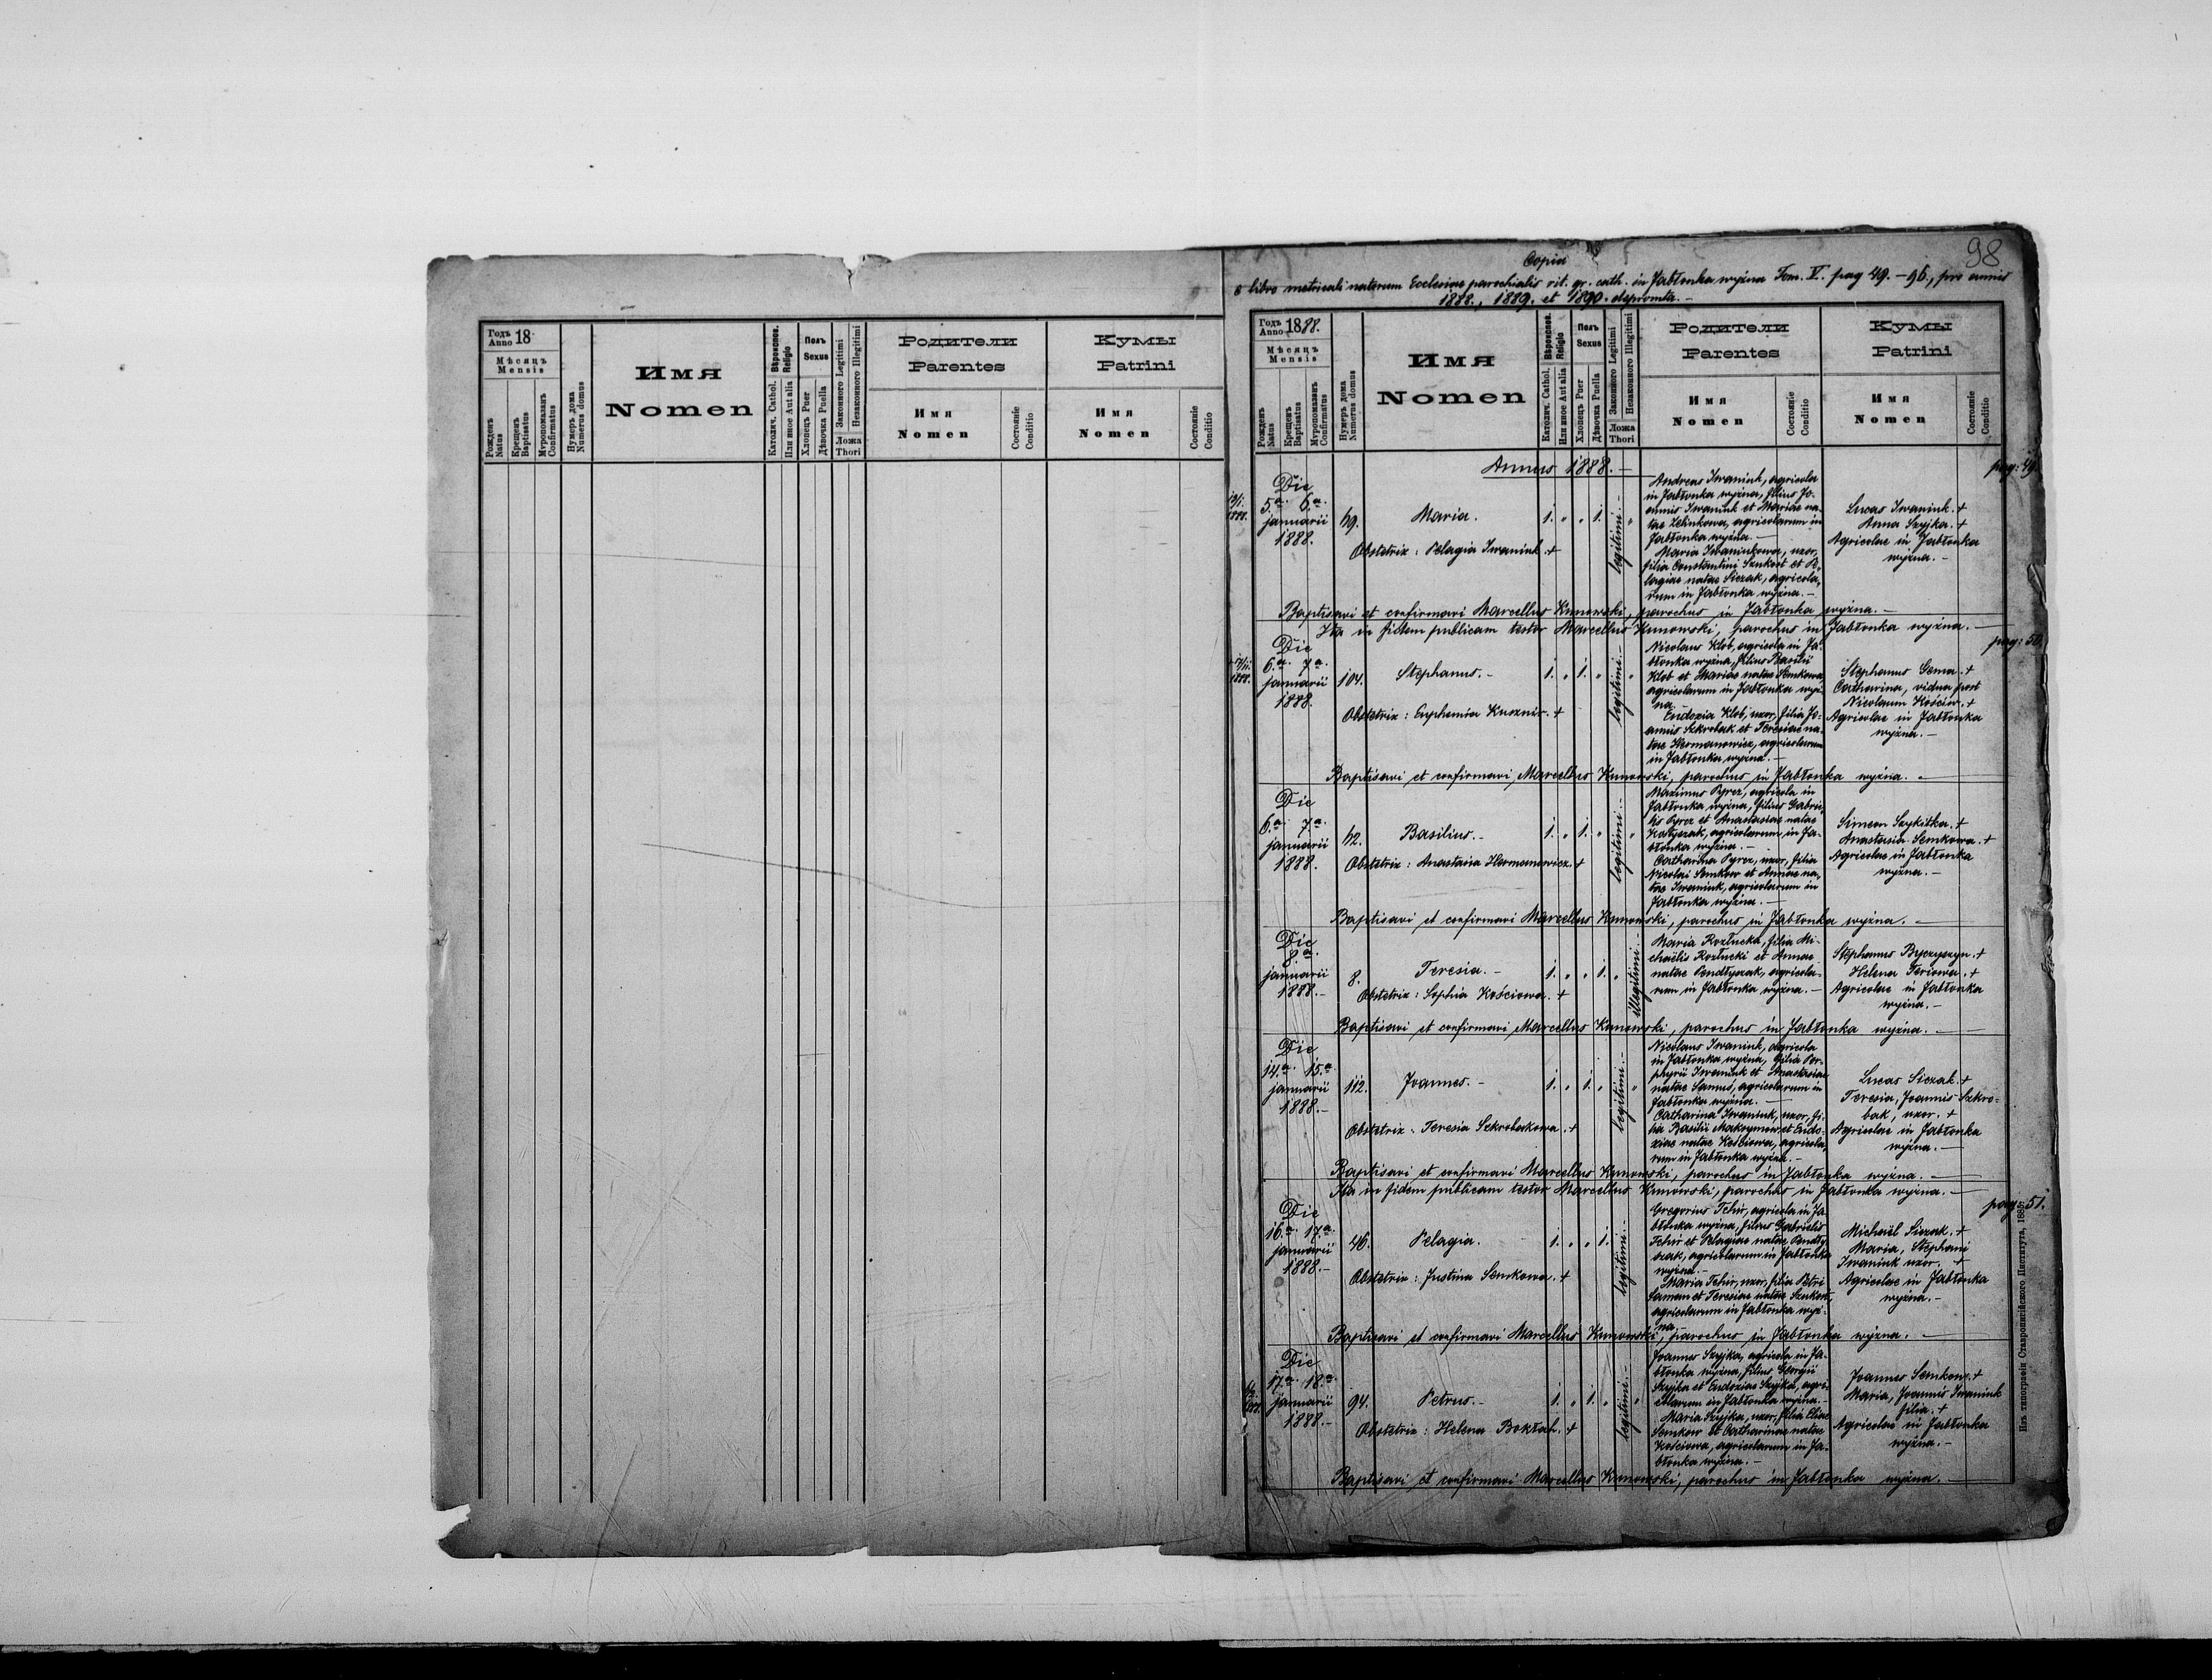 Годъ 18
Anno
Мѣсяцъ
Mensis
Рожденъ
Natus
Крещенъ
Baptisatus
Муропомазанъ
Confirmatus
Нумеръ дома
Numerus domus
Имя
Nomen
Вѣроиспов.
Religio
Католич. Cathol.
Или иное Aut alia
Полъ
Sexus
Хлопецъ Puer
Дѣвочка Puella
Законного Legitimi
Незаконного Illegitimi
Ложа
Thori
Родители
Parentes
Имя
Nomen
Состоянie
Conditio
Кумы
Patrini
Имя
Nomen
Состоянie
Conditio
98
Copia
e libro metricali natorum Ecclesiae parochialis rit. gr. cath. in Jabłonka wyżna Tom. V. pag 49.-96., pro annis
1888., 1889. et 1890. depromta.-
Годъ 1888.
Anno
Мѣсяцъ
Mensis
Рожденъ
Natus
Крещенъ
Baptisatus
Муропомазанъ
Confirmatus
Нумеръ дома
Numerus domus
Имя
Nomen
Вѣроиспов.
Religio
Католич. Cathol.
Или иное Aut alia
Полъ
Sexus
Хлопецъ Puer
Дѣвочка Puella
Законного Legitimi
Незаконного Illegitimi
Ложа
Thori
Родители
Parentes
Имя
Nomen
Состоянie
Conditio
Кумы
Patrini
Имя
Nomen
Состоянie
Conditio
Annus 1888.-
pag: 49.
Die
5.a 6.a
januarii
1888.
Maria.
1. " " 1.
legitimi.-
Obstetrix: Pelagia Iwaniuk.+
Andreas Iwaniuk, agricola
in Jabłonka wyżna, filius Jo-
annis Iwaniuk et Mariae na-
tae Zelinkowa, agricolarum in
Jabłonka wyżna.-
Maria Iwaniukowa, uxor,
filia Constantini Sznkort et Pe-
lagiae natae Siczak, agricola-
rum in Jabłonka wyżna.-
Lucas Iwaniuk.+
Anna Szyjka.+
Agricolae in Jabłonka
wyżna.-
Baptisavi et confirmavi Marcellus Kunowski, parochus in Jabłonka wyżna.-
Ita in fidem publicam testor Marcellus Kunowski, parochus in Jabłonka wyżna.-
pag: 50.
Die
6.a 7.a
januarii
1888.
104.
Stephanus.-
1. " 1. " "
legitimi.-
Obstetrix: Euphemia Kusznir.+
Nicolaus Kłob, agricola in Ja-
błonka wyżna, filius Basilii
Kłob et Mariae natae Semkowa,
agricolarum in Jabłonka wyż-
na.
Eudoxia Kłob, uxor, filia Jo-
annis Szkrobak et Teresiae na-
tae Hermanowicz, agricolarum
in Jabłonka wyżna.-
Stephanus Gema.+
Catharina, vidua post
Nicolaum Kościw.+
Agricolae in Jabłonka
wyżna.-
Baptisavi et confirmavi Marcellus Kunowski, parochus in Jabłonka wyżna.-
Die
6.a 7.a
januarii
1888.
Basilius.-
1. " 1. " "
legitimi.-
Obstetrix: Anastasia Hermanowicz.+
Maximus Pyrcz, agricola in
Jabłonka wyżna, filius Gabrie-
lis Pyrcz et Anastasiae natae
Kotyszak, agricolarum in Ja-
błonka wyżna.-
Catharina Pyrcz, uxor, filia
Nicolai Semkow et Annae na-
tae Iwaniuk, agricolarum in
Jabłonka wyżna.-
Simeon Szykitka.+
Anastasia Semkowa.+
Agricolae in Jabłonka
wyżna.-
Baptisavi et confirmavi Marcellus Kunowski, parochus in Jabłonka wyżna.-
Die
8.a
januarii
1888.-
8.
Teresia.-
1. " " 1. "
illegitimi.-
Obstetrix: Sophia Kościowa.+
Maria Rozłucka, filia Mi-
chaëlis Rozłucki et Annae
natae Pendtyszak, agricola-
rum in Jabłonka wyżna.-
Stephanus Byczyszyn.+
Helena Feriowa.+
Agricolae in Jabłonka
wyżna.-
Baptisavi et confirmavi Marcellus Kunowski, parochus in Jabłonka wyżna.-
Die
14.a 15.a
januarii
1888.-
112.
Joannes.-
1. " 1. " "
legitimi.-
Obstetrix: Teresia Szkrobakowa.+
Nicolaus Iwaniuk, agricola
in Jabłonka wyżna, filia Por-
phyrii Iwaniuk et Anastasiae
natae Samuś, agricolarum in
Jabłonka wyżna.-
Catharina Iwaniuk, uxor, fi-
lia Basilii Maksymow et Eudo-
xiae natae Kościowa, agricola-
rum in Jabłonka wyżna.-
Lucas Siczak.+
Teresia, Joannis Szkro-
bak, uxor.+
Agricolae in Jabłonka
wyżna.-
Baptisavi et confirmavi Marcellus Kunowski, parochus in Jabłonka wyżna.-
Ita in fidem publicam testor Marcellus Kunowski, parochus in Jabłonka wyżna.-
pag: 51.
Die
16.a 17.a
januarii
1888.-
46.
Pelagia.
1. " " 1. "
legitimi.-
Obstetrix: Justina Semkowa.+
Gregorius Tchir, agricola in Ja-
błonka wyżna, filius Gabrielis
Tchir et Pelagiae natae Pendty-
szak, agricolarum in Jabłonka
wyżna.-
Maria Tchir, uxor, filia Petri
Saman et Teresiae natae Sznkort,
agricolarum in Jabłonka wyż-
na.-
Michaël Siczak.+
Maria, Stephani
Iwaniuk uxor.+
Agricolae in Jabłonka
wyżna.-
Baptisavi et confirmavi Marcellus Kunowski, parochus in Jabłonka wyżna.-
Die
17.a 18.a
januarii
1888.-
94.
Petrus.-
1. " 1. " "
legitimi.-
Obstetrix: Helena Bokłach.+
Joannes Szyjka, agricola in Ja-
błonka wyżna, filius Georgii
Szyjka et Eudoxiae Szyjka, agri-
colarum in Jabłonka wyżna.-
Maria Szyjka, uxor, filia Eliae
Semkow et Catharinae natae
Kościowa, agricolarum in Ja-
błonka wyżna.-
Joannes Semkow.+
Maria, Joannis Iwaniuk
filia.+
Agricolae in Jabłonka
wyżna.-
Baptisavi et confirmavi Marcellus Kunowski, parochus in Jabłonka wyżna.-
Изъ типографiи Ставропигiйского Института, 1885.